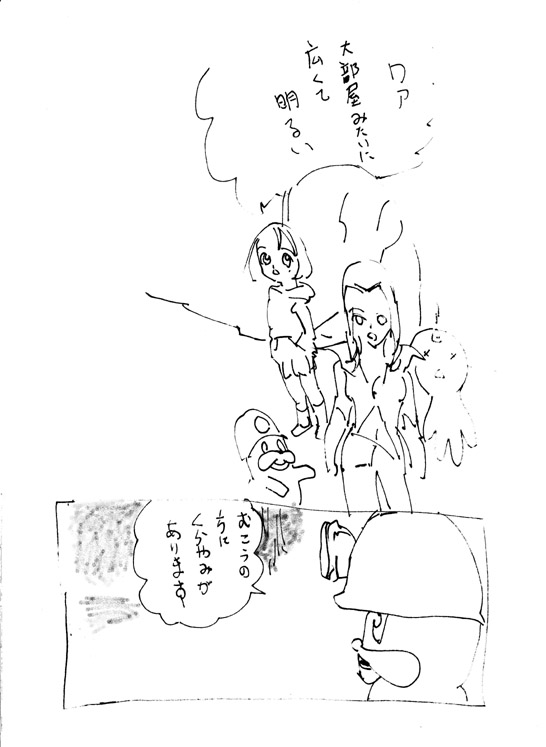 ワァ
大部屋みたいに
広くて
明るい
むこうの
方に
くらやみが
あります